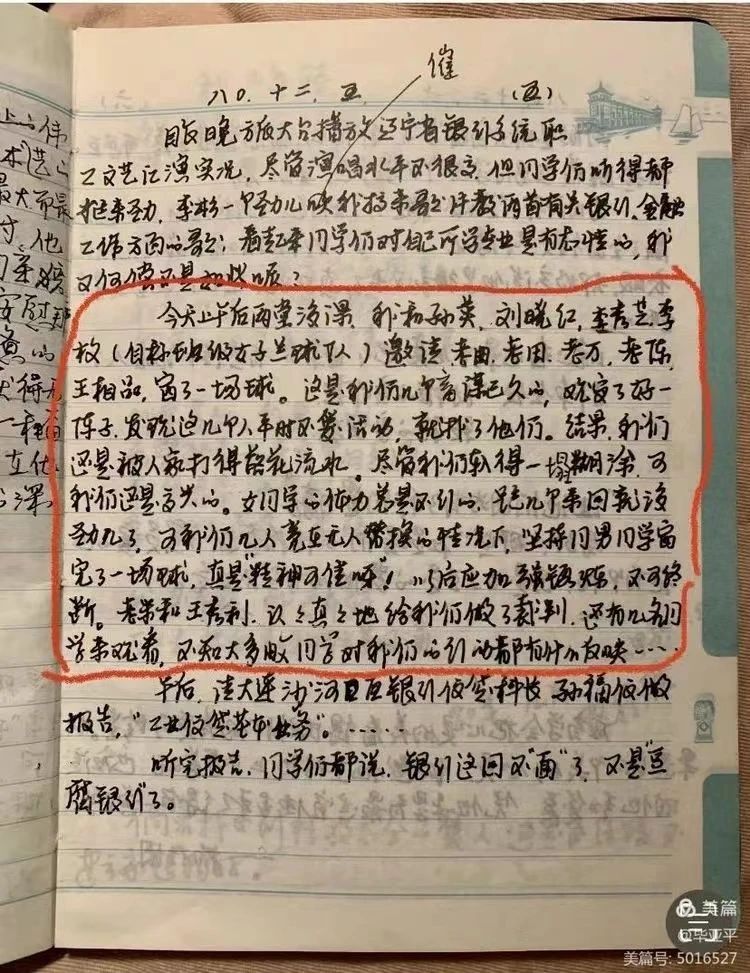 催
八〇.十二.五. (五)
目前晚方放大台播放辽宁省银行系统职
工文艺汇演实况,尽管演唱水平不很高,但同学们听得都
挺来劲,李杉一个劲儿 我 来歌 许教两首有关银行、金融
工作方面的歌;看起来同学们对自己所学专业是有感情的,我
又何尝不是如此呢?
今天上午后两堂没课,我和孙英、刘晓红、李秀芝、李
枚(自称班级女子兰球队)邀请老曲、老田、老万、老陈、
王相品,赛了一场球。这是我们几个密谋已久的,观察了好一
阵子,发现这几个人平时不爱活动,就找了他们。结果,我们
还是被人家打得落花流水。尽管我们输得一塌糊涂,可
我们还是高兴的。女同学的体力总是不行的,跑几个来回就没
劲儿了,可我们几人竟在无人替换的情况下,坚持同男同学赛
完了一场球,真是“精神可佳呀”!以后应加强锻炼,不可终
断。老荣和王秀利,认々真々地给我们做了裁判,还有几名同
学来观看,不知大多数同学对我们的行动都有什么反映……
午后,请大连沙河口区银行信贷科长孙福信做
报告,“工业信贷基本业务”。……
听完报告,同学们都说,银行这回不“面”了,不是“豆
腐银行”了。
上的伟
最大而最
时。他
安慰
的
得
一种
在他
深
美篇
@毕亚平
美篇号: 5016527